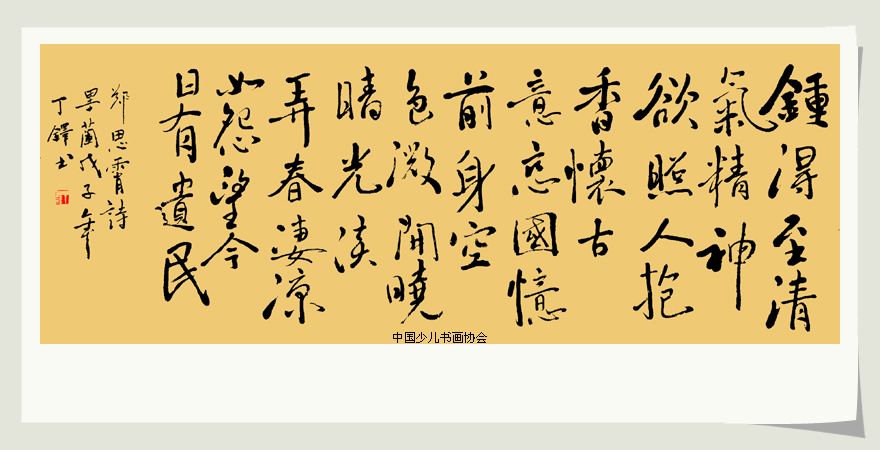 鍾得至清
氣精神
欲照人抱
香懷古
意恋國憶
前身空
色微開曉
晴光淡
弄春凄凉
如怨望今
日有遺民
鄭思霄詩
墨蘭戊子年
丁鐸书
中国少儿书画协会